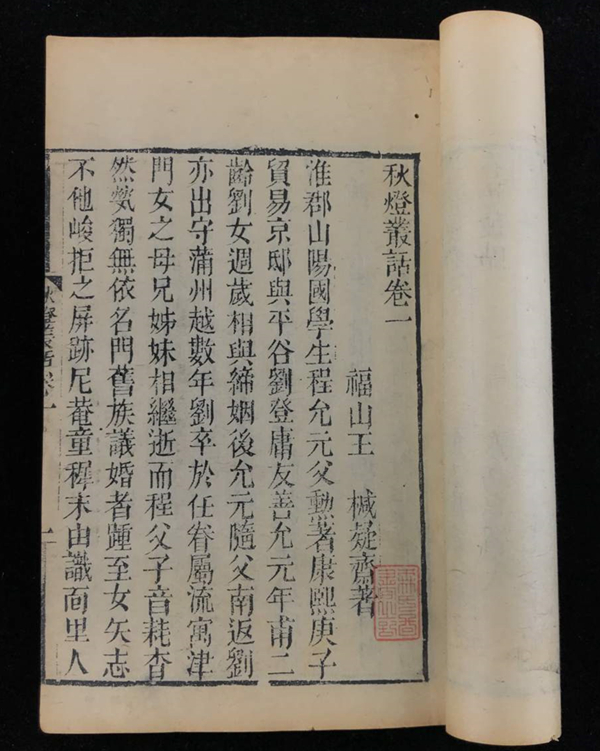 秋燈叢話卷一
福山王 椷凝齋著
淮郡山陽國學生程允元父勲著康熙庚子
貿易京邸與平谷劉登庸友善允元年甫二
齡劉女週歲相與締姻後允元隨父南返劉
亦出守蒲州越數年劉卒於任眷屬流寓津
門女之母兄姊妹相繼逝而程父子音耗杳
然煢獨無依名門舊族議婚者踵至女矢志
不他峻拒之屏跡尼菴童穉末由識面里人
秋燈叢話卷一
一